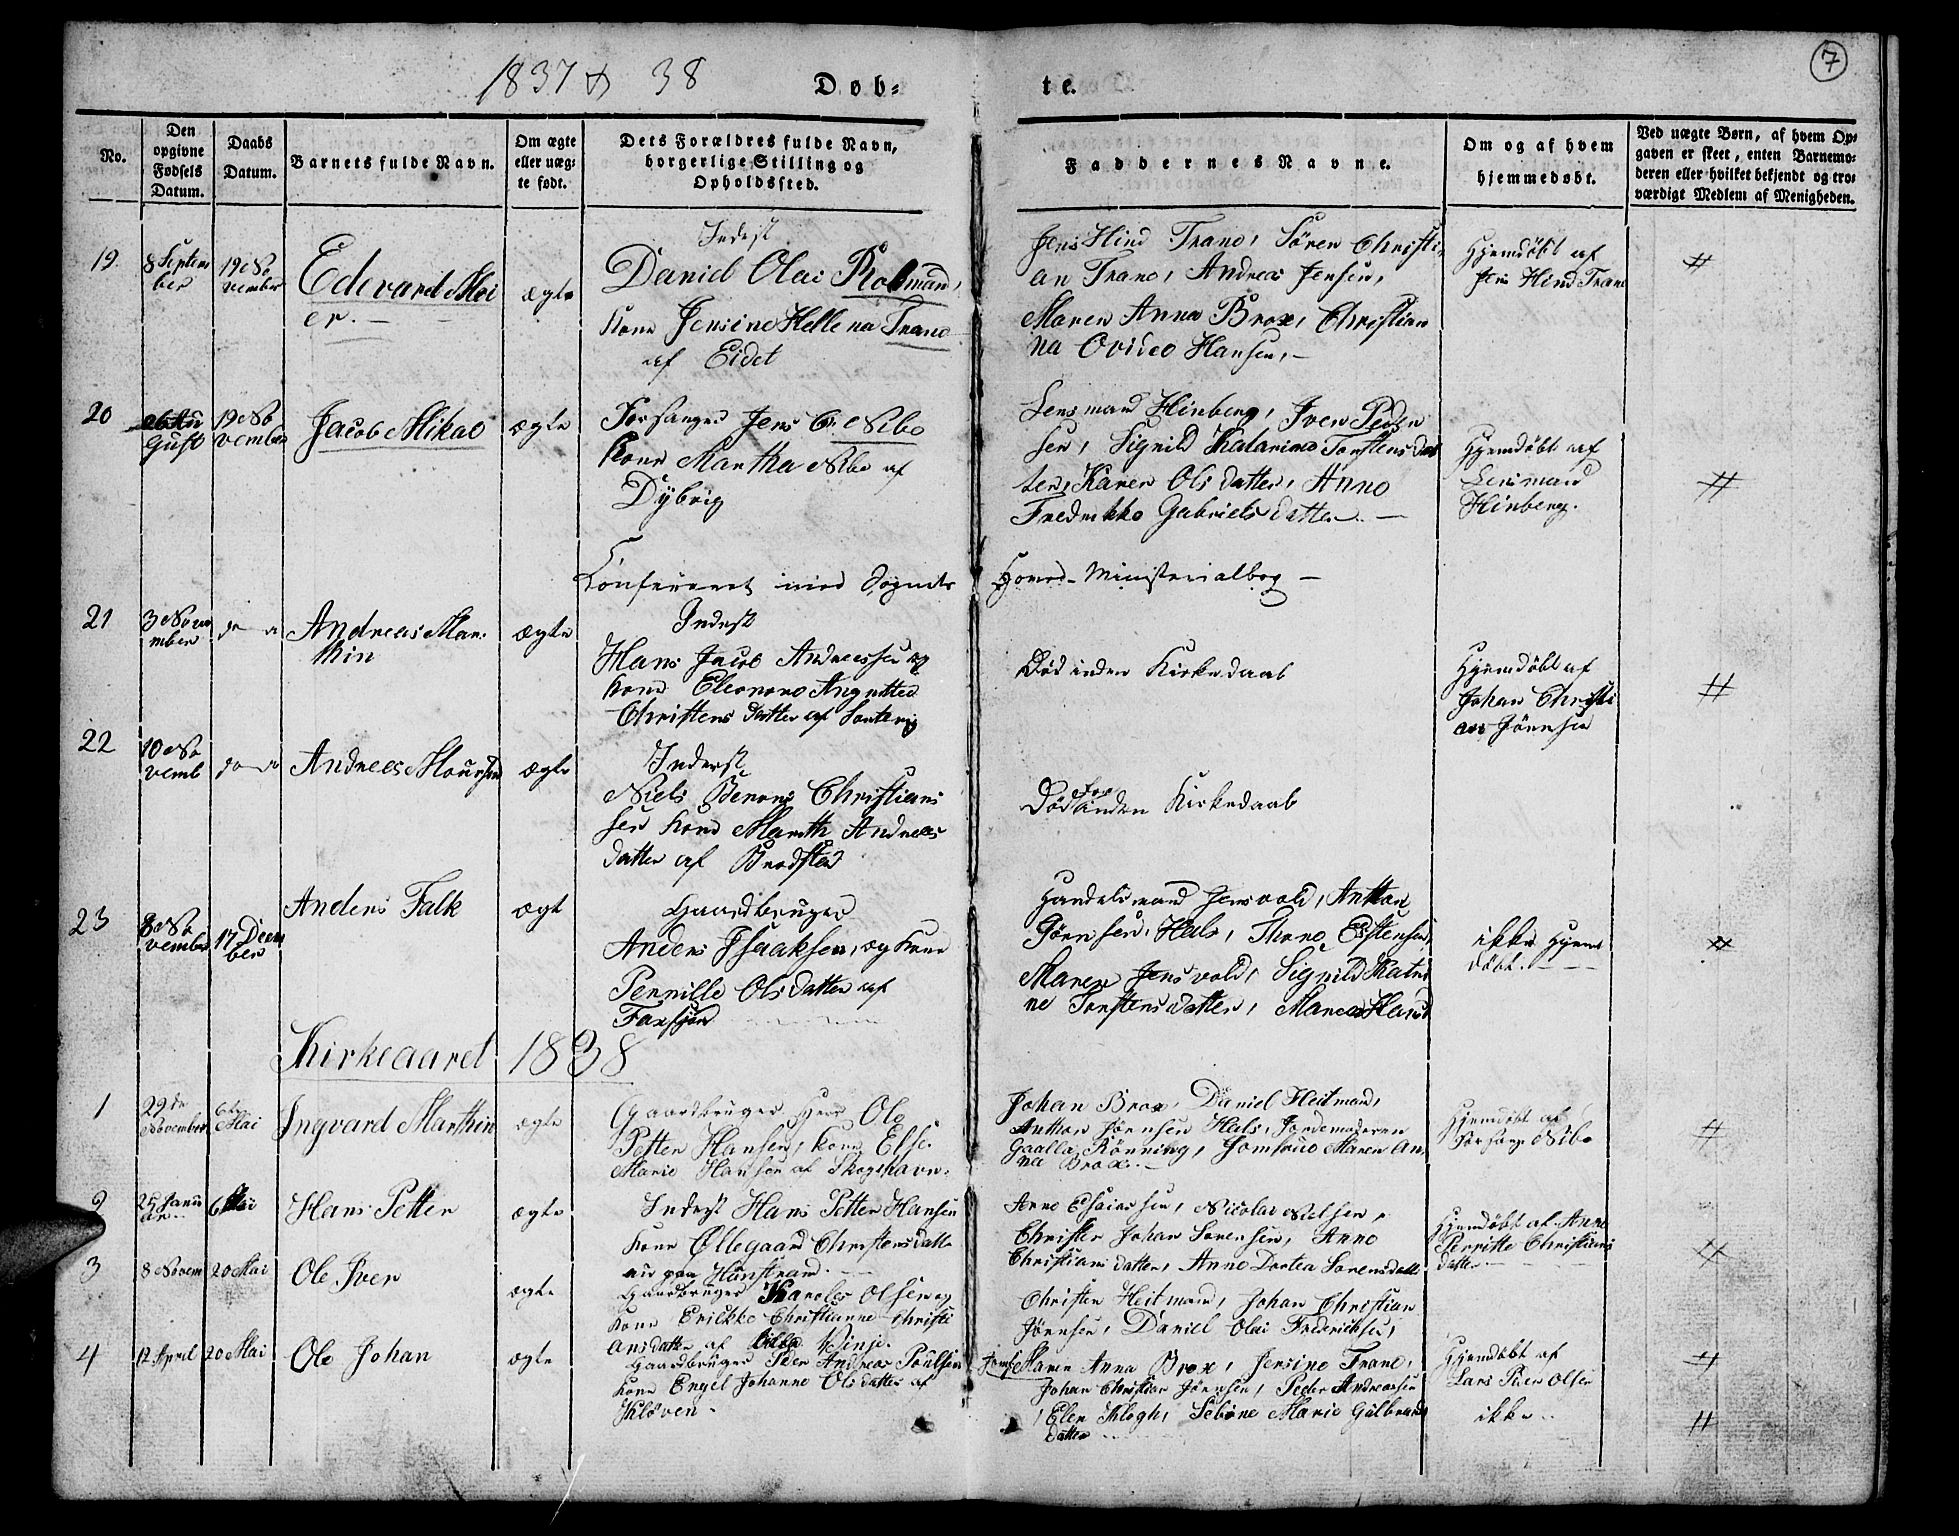 1837 & 38
Døb-
te.
7
No.
Den opgivne Fødsels Datum.
Daabs Datum.
Barnets fulde Navn.
Om ægte eller uægte født.
Dets Forældres fulde Navn, borgerlige Stilling og Opholdssted.
Faddernes Navne.
Om og af hvem hjemmedøbt.
Ved uægte Børn, af hvem Opgaven er skeet, enten Barnemoderen eller hvilket bekjendt og troværdigt Medlem af Menigheden.
19.
8 Septem
ber
19 No
vember
Edevard Mei
er.
ægte
Inderst
Daniel Olai Rotmand,
Kone Jensine Hellena Trane
af Eidet
Jens Hind Trane, Sören Christi
an Trane, Andreas Jensen,
Maren Anna Brox, Christian
na Ovideo Hansen,
Hjemdöbt af
Jens Hind Trane
20
26 Au
gust
19 No
vember
Jacob Mikal
ægte
Forsanger Jens C. Nibe
Kone Martha Nibe af
Dybvig
Lensmand Hinberg, Iver Peder
sen, Sigrild Katarine Torstensdat
ter, Karen Olsdatter, Anne
Fredrikke Gabrielsdatter.
Hjemdöbt af
Lensmand
Hinberg.
Confereret med Sognets Hoved-Ministerialbog
21
3 Novem
mber
Andreas Mar-
thin
ægte
Inderst
Hans Jacob Andreassen og
Kone Eleonore Angnethe
Christensdatter af
Död inden Kirkedaab
Hjemdöbt af
Johan Christi
an Jörnsen
22
10 No
vemb
Andreas
ægte
Inderst
Niels Benoni Christians
sen Kone Mareth Andreas
datter af Brodstad
Död inden Kirkedaab
23
8 No
vember
17 Decem
ber
Anders Falk
ægt
Gaardbruger
Anders Isaaksen, og Kone
Pernille Olsdatter af
Faxfjord
Handelsmand Jensvold, Anthon
Jörnsen Hals, Thrne Estensen,
Maren Jensvold, Sigrild Katri
ne Torstensdatter, Maren
ikke Hjem
döbt.
Kirkeaaret 1838
1
29de
November
6te
Mai
Ingvard Marthin
ægte
Gaardbruger Herr Ole
Petter Hansen, Kone Else
Marie Hansen af Skogshavn.
Johan Brox, Daniel Heitmand,
Anthon Jörnsen Hals, Jordemoderen
Gaalla Rönning, Jomfrue Maren An
na Brox.
Hjemdöbt af
Forsanger Nibe
2
25 Janu
ar
6 Mai
Hans Petter
ægte
Inderst Hans Petter Hansen
Kone Øllegaard Christensdatt
er paa
Arne Esaiassen, Nicolai Nielsen,
Christen Johan Sörensen, Anne
Christiansdatter, Anne Dortea Sorensdatt
Hjemdöbt af Anne
Perritte Christians
datter
3
8 Novem
20 Mai
Ole Iver
ægte
Gaardbruger Karoles Olsen og
Kone Erickke Christianne Christi
ansdatter af Lille Vinje.
Christen Heitmand, Johan Christian
Jörnsen, Daniel Olai Fredriksen,
Jomf Maren Anna Brox, Jensine Trane,
Hjemdöbt af
Lars Peder Olsen
4
12 April
20 Mai
Ole Johan
ægte
Gaardbruger Peder Andreas Poulsen
Kone Engel Johanne Olsdatter af
Klöven.
Johan Christian Jörnsen, Peder Andreassen
, Elen Klogh, Sebine Marie Gulbrands
datter
ikke